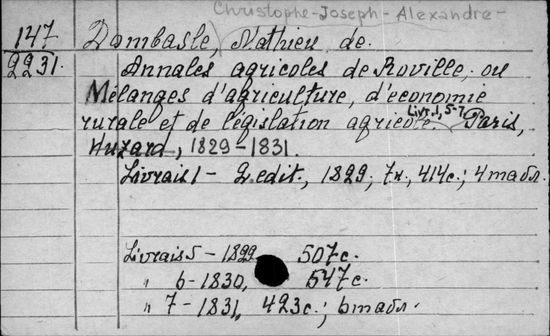 Christophe-Joseph-Alexandre-
147
2231.
Dombasle, Mathieu de.
Annales agricoles de Roville, ou
Mélanges d'agriculture, d'économie
rurale et de législation agricole. Livr. 1, 5-7 Paris,
Huzard, 1829-1831.
Livrais 1 - 2 edit., 1829, 7н., 414с.; 4 табл.
Livrais 5 - 1829 507с.
" 6 - 1830, 547с.
" 7 - 1831, 423с.; 6 табл.